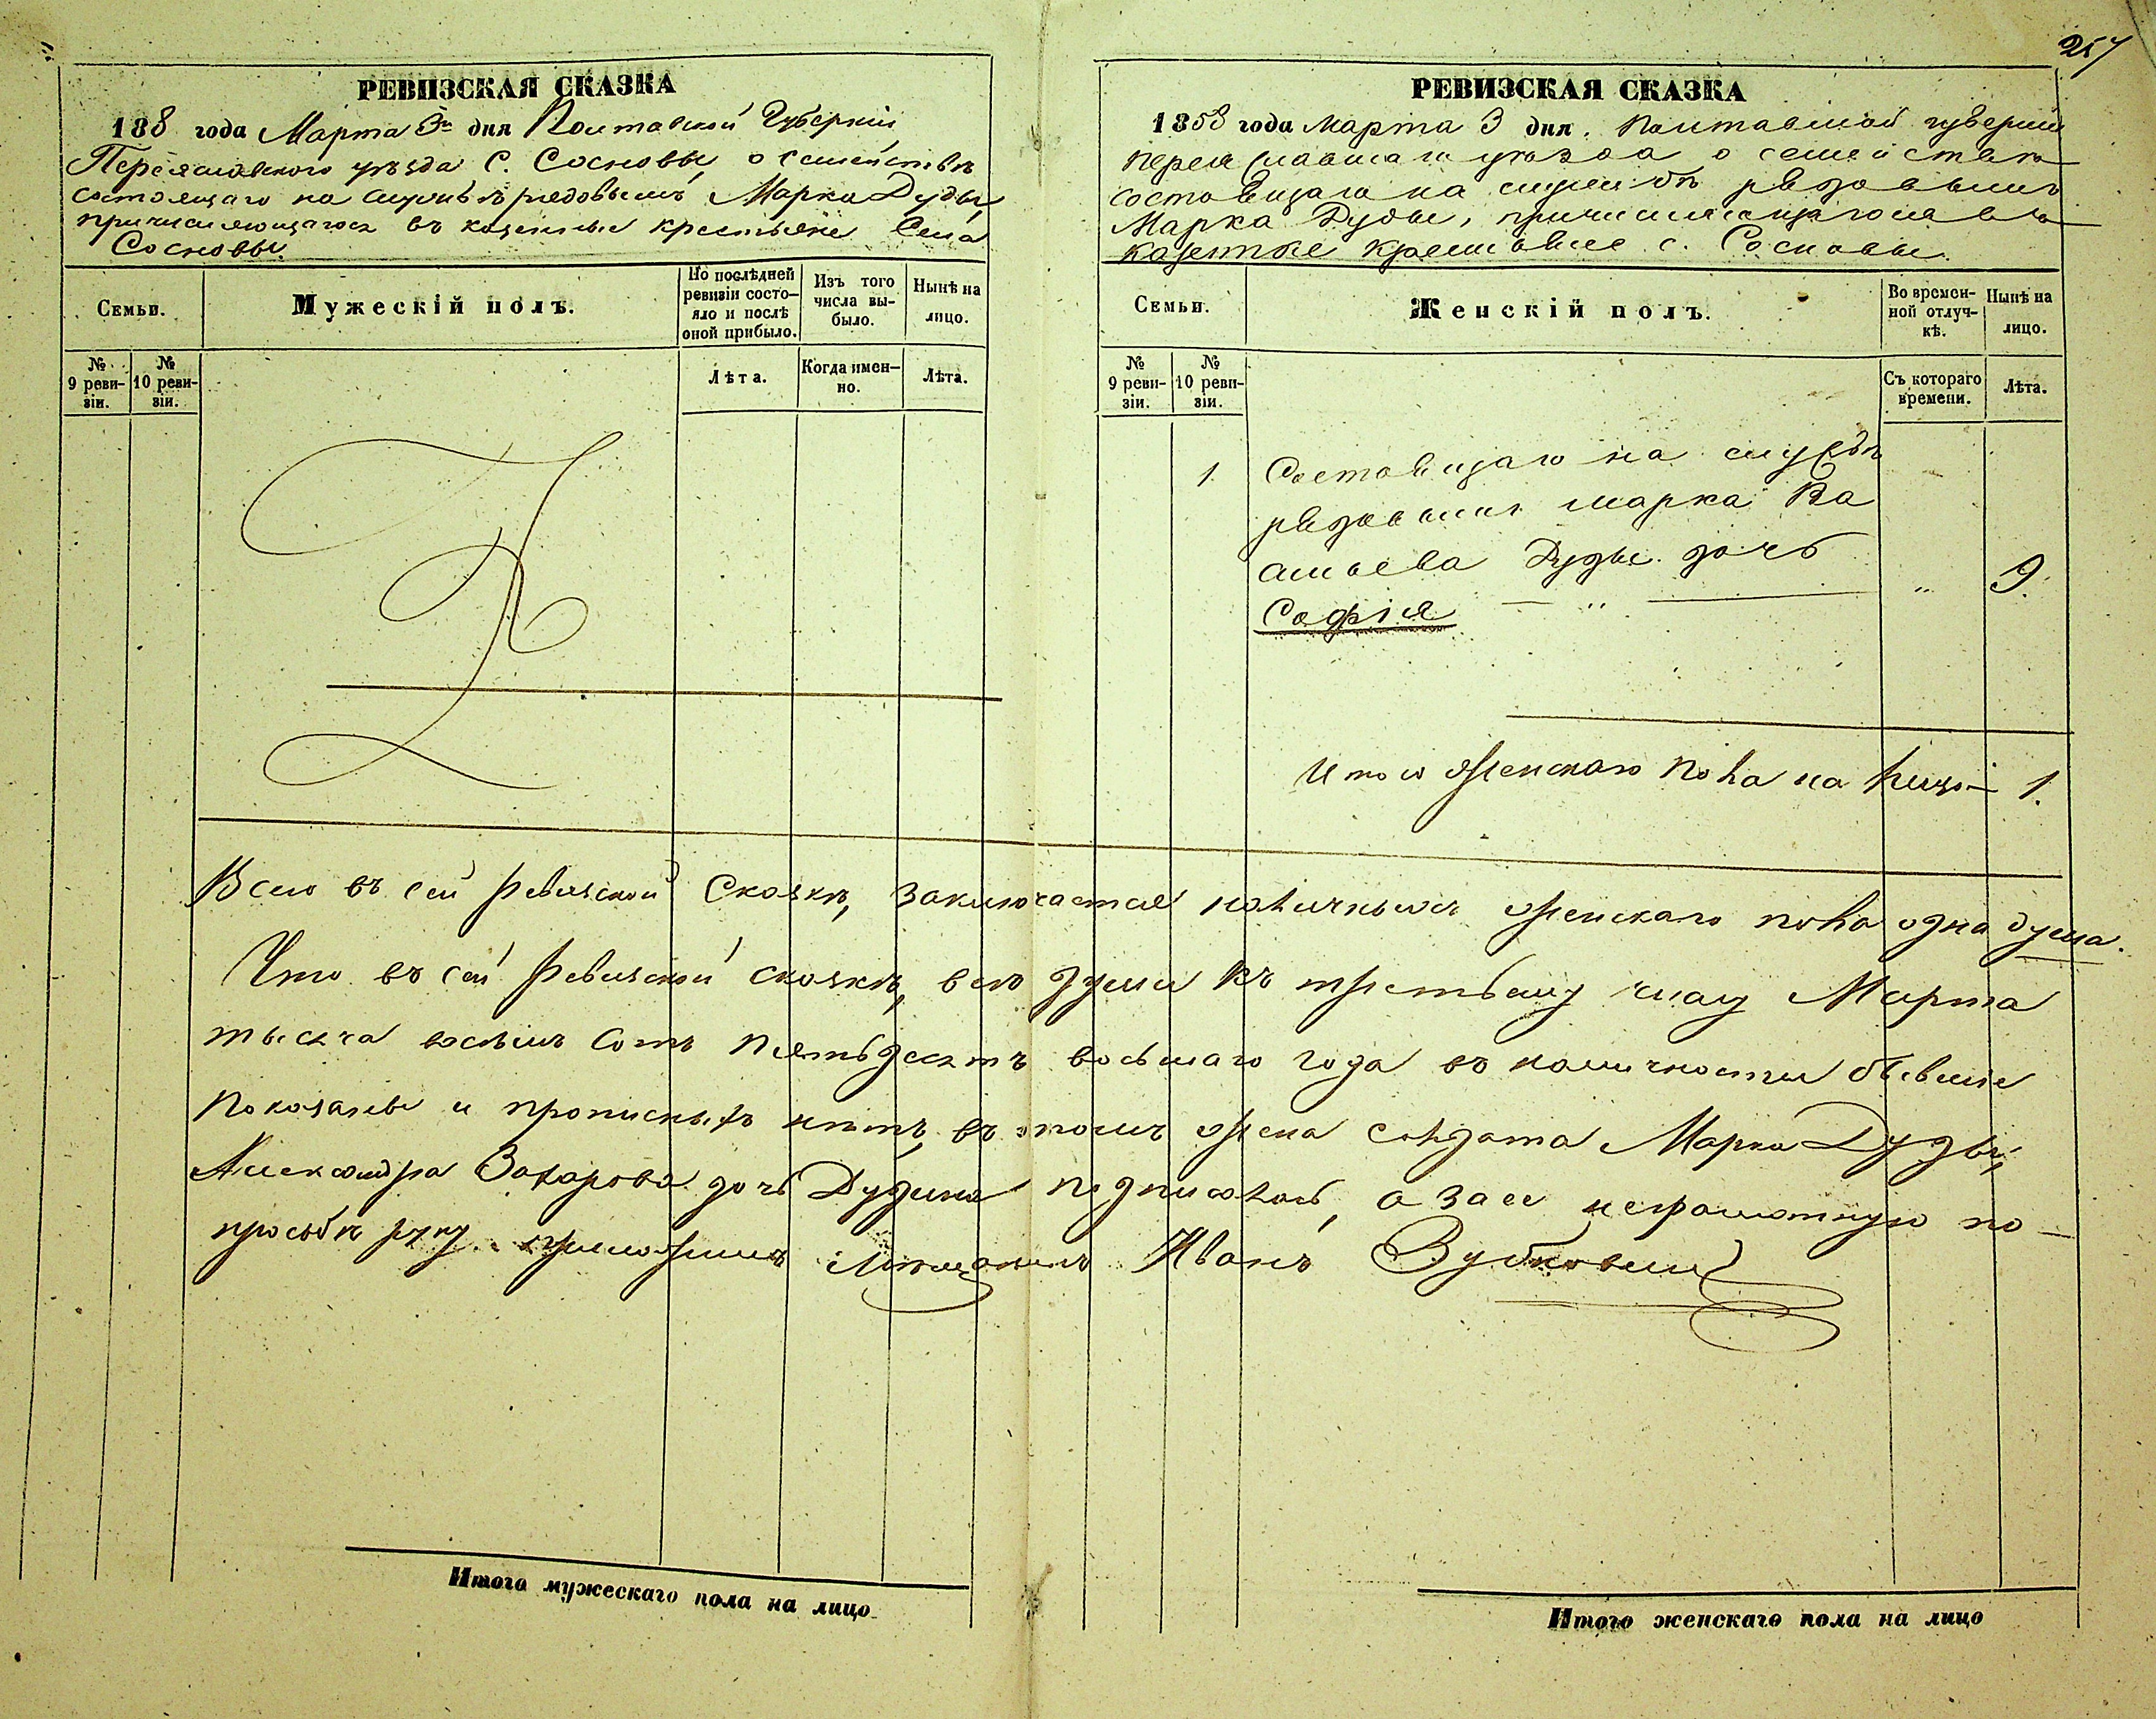 257
РЕВИЗСКАЯ СКАЗКА
188 года Марта 3го дня Полтавской Губерніи,
Переяславского уѣзда С. Сосновы, о семействѣ
состоящаго на службѣ рядовымъ Марка Дуды,
причисляющагося въ казенные крестьяне Села
Сосновы.
Семьи.
Мужескій полъ.
По послѣдней ревизіи состояло и послѣ оной прибыло.
Изъ того числа выбыло.
Нынѣ на лицо.
№ 9 ревизіи.
№ 10 ревизіи.
Лѣта.
Когда именно.
Лѣта.
РЕВИЗСКАЯ СКАЗКА
1858 года Марта 3 дня. Полтавской губерніи
Переяславскаго уѣзда о семействѣ
состоящаго на службѣ рядовымъ
Марка Дуды, причисляющагося въ
казенные крестьяне с. Сосновы.
Семьи.
Женскій полъ.
Во временной отлучкѣ.
Нынѣ на лицо.
№ 9 ревизіи.
№ 10 ревизіи.
Съ котораго времени.
Лѣта.
1. Состоящаго на службѣ
рядовымъ Марка Ва
сильева Дуды дочь
Софія — " — " 9.
Итого женскаго пола на лицо — 1.
Всего въ сей ревизской Сказкѣ, заключается наличныхъ женскаго пола одна душа.
Что въ сей ревизской сказкѣ, всѣ души къ третьему числу Марта
тысяча восемь сотъ пятьдесятъ восьмаго года въ наличности бывшіе
показаны и прописныхъ нѣтъ, въ томъ жена солдата Марка Дуды,
Александра Захарова дочь Дудина подписалась, а за ее неграмотную по
просьбѣ руку приложилъ Мѣщанинъ Иванъ
Итого мужескаго пола на лицо
Итого женскаго пола на лицо